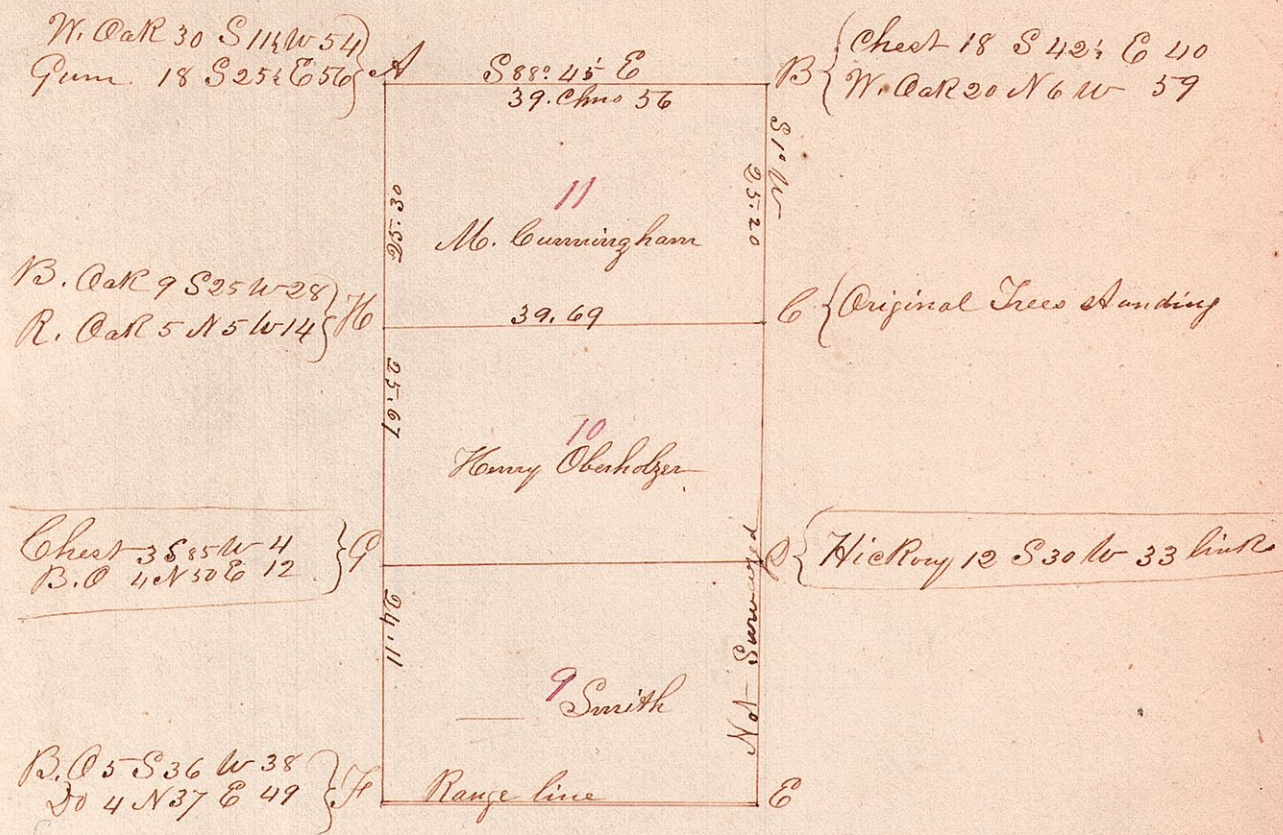 W. Oak 30 S 11½ W 54
Gum 18 S 25½ E 56
A
S 88° 45' E
39. Chns 56
B
Chest 18 S 42½ E 40
W. Oak 20 N 6 W 59
S 1° W
25.20
11
M. Cunningham
B. Oak 9 S 25 W 28
R. Oak 5 N 5 W 14
H
39.69
C
Original Trees standing
25.67
10
Henry Oberholzer
Chest 3 S 85 W 4
B. O 4 N 50 E 12
G
D
Hickory 12 S 30 W 33 links
24.11
Not Surveyed
9
Smith
B. O 5 S 36 W 38
Do 4 N 37 E 49
F
Range line
E